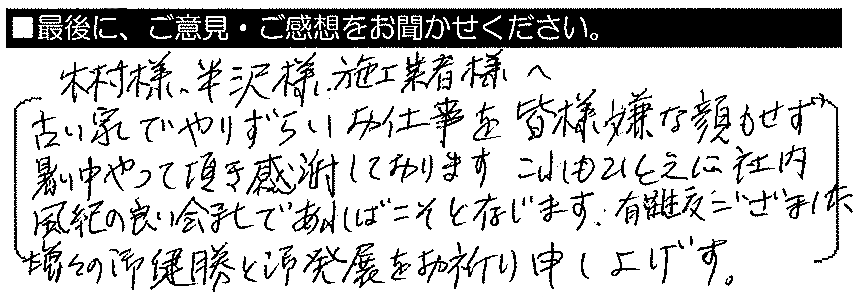 ■最後に、ご意見・ご感想をお聞かせください。
木村様、半沢様、施工業者様へ
古い家でやりずらいお仕事を皆様嫌な顔もせず
暑い中やって頂き感謝しております これもひとえに社内
風紀の良い会社であればこそと存じます、有難度ございました
増々の御健勝と御発展をお祈り申し上げす。